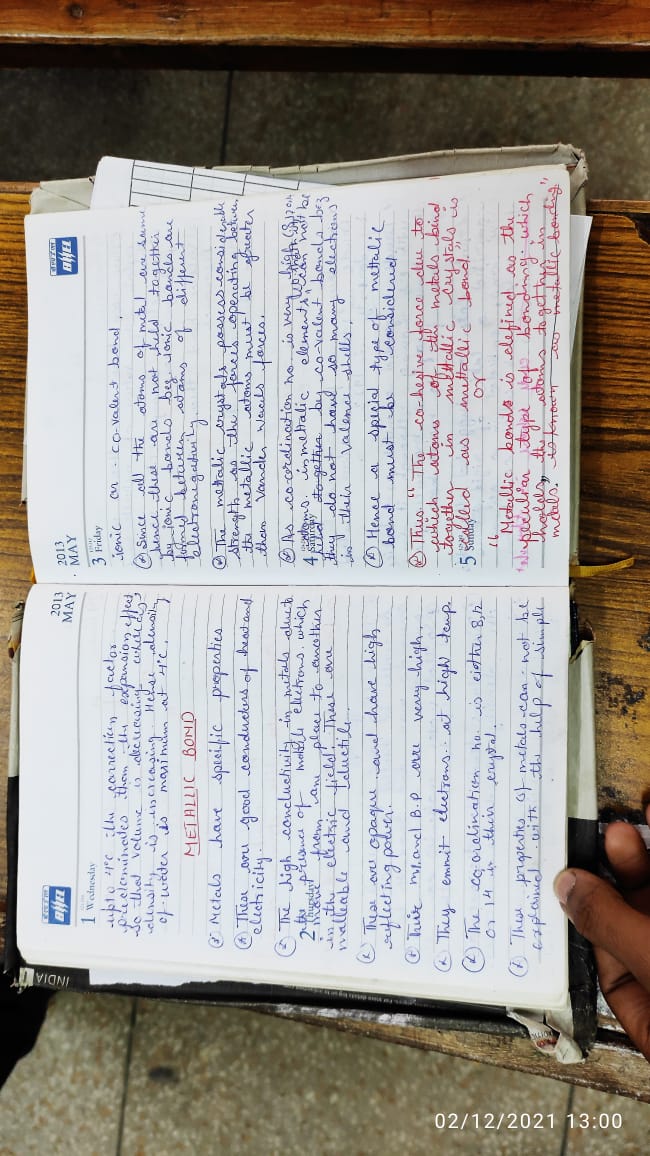 BHEL
2013
MAY
1 Wednesday
upto 4°C the correction factor
predominates than the expansion effect
so that volume is decreasing whereas
density is increasing. Hence density
of water is maximum at 4°C.
METALLIC BOND
Metals have specific properties
These are good conductors of heat and
electricity.
The high conductivity in metals due to
the presence of mobile electrons. which
2
move from one place to another
in the electric field. These are
malleable and ductile.
These are opaque and have high
reflecting power.
Their M.P and B.P are very high.
They emmit electrons at high temp
The co-ordination no. is either 8, 12
or 14 in their crystal.
These properties of metals can not be
explained with the help of simple
BHEL
2013
MAY
3 Friday
ionic or co-valent bond.
Since all the atoms of metal are same
hence these are not held together
by ionic bonds beg ionic bonds are
formed between atoms of different
electronegativity.
The metallic crystals possess considerable
strength as the forces operating between
the metallic atoms must be greater
than Vander Waals forces.
As co-ordination no. is very high
4
atoms. in metallic elements can not be
held together by co-valent bonds
they do not have so many electrons
in their valence shells.
Hence a special type of metallic
bond must be considered.
Thus " The co-hesive force due to
which atoms of the metals bind
together in metallic crystals is
5 Sunday
called as metallic bond"
or
" Metallic bonds is defined as the
peculiar type of bonding which
holds the atoms together in
metals. is known as metallic bonding"
INDIA
02/12/2021 13:00